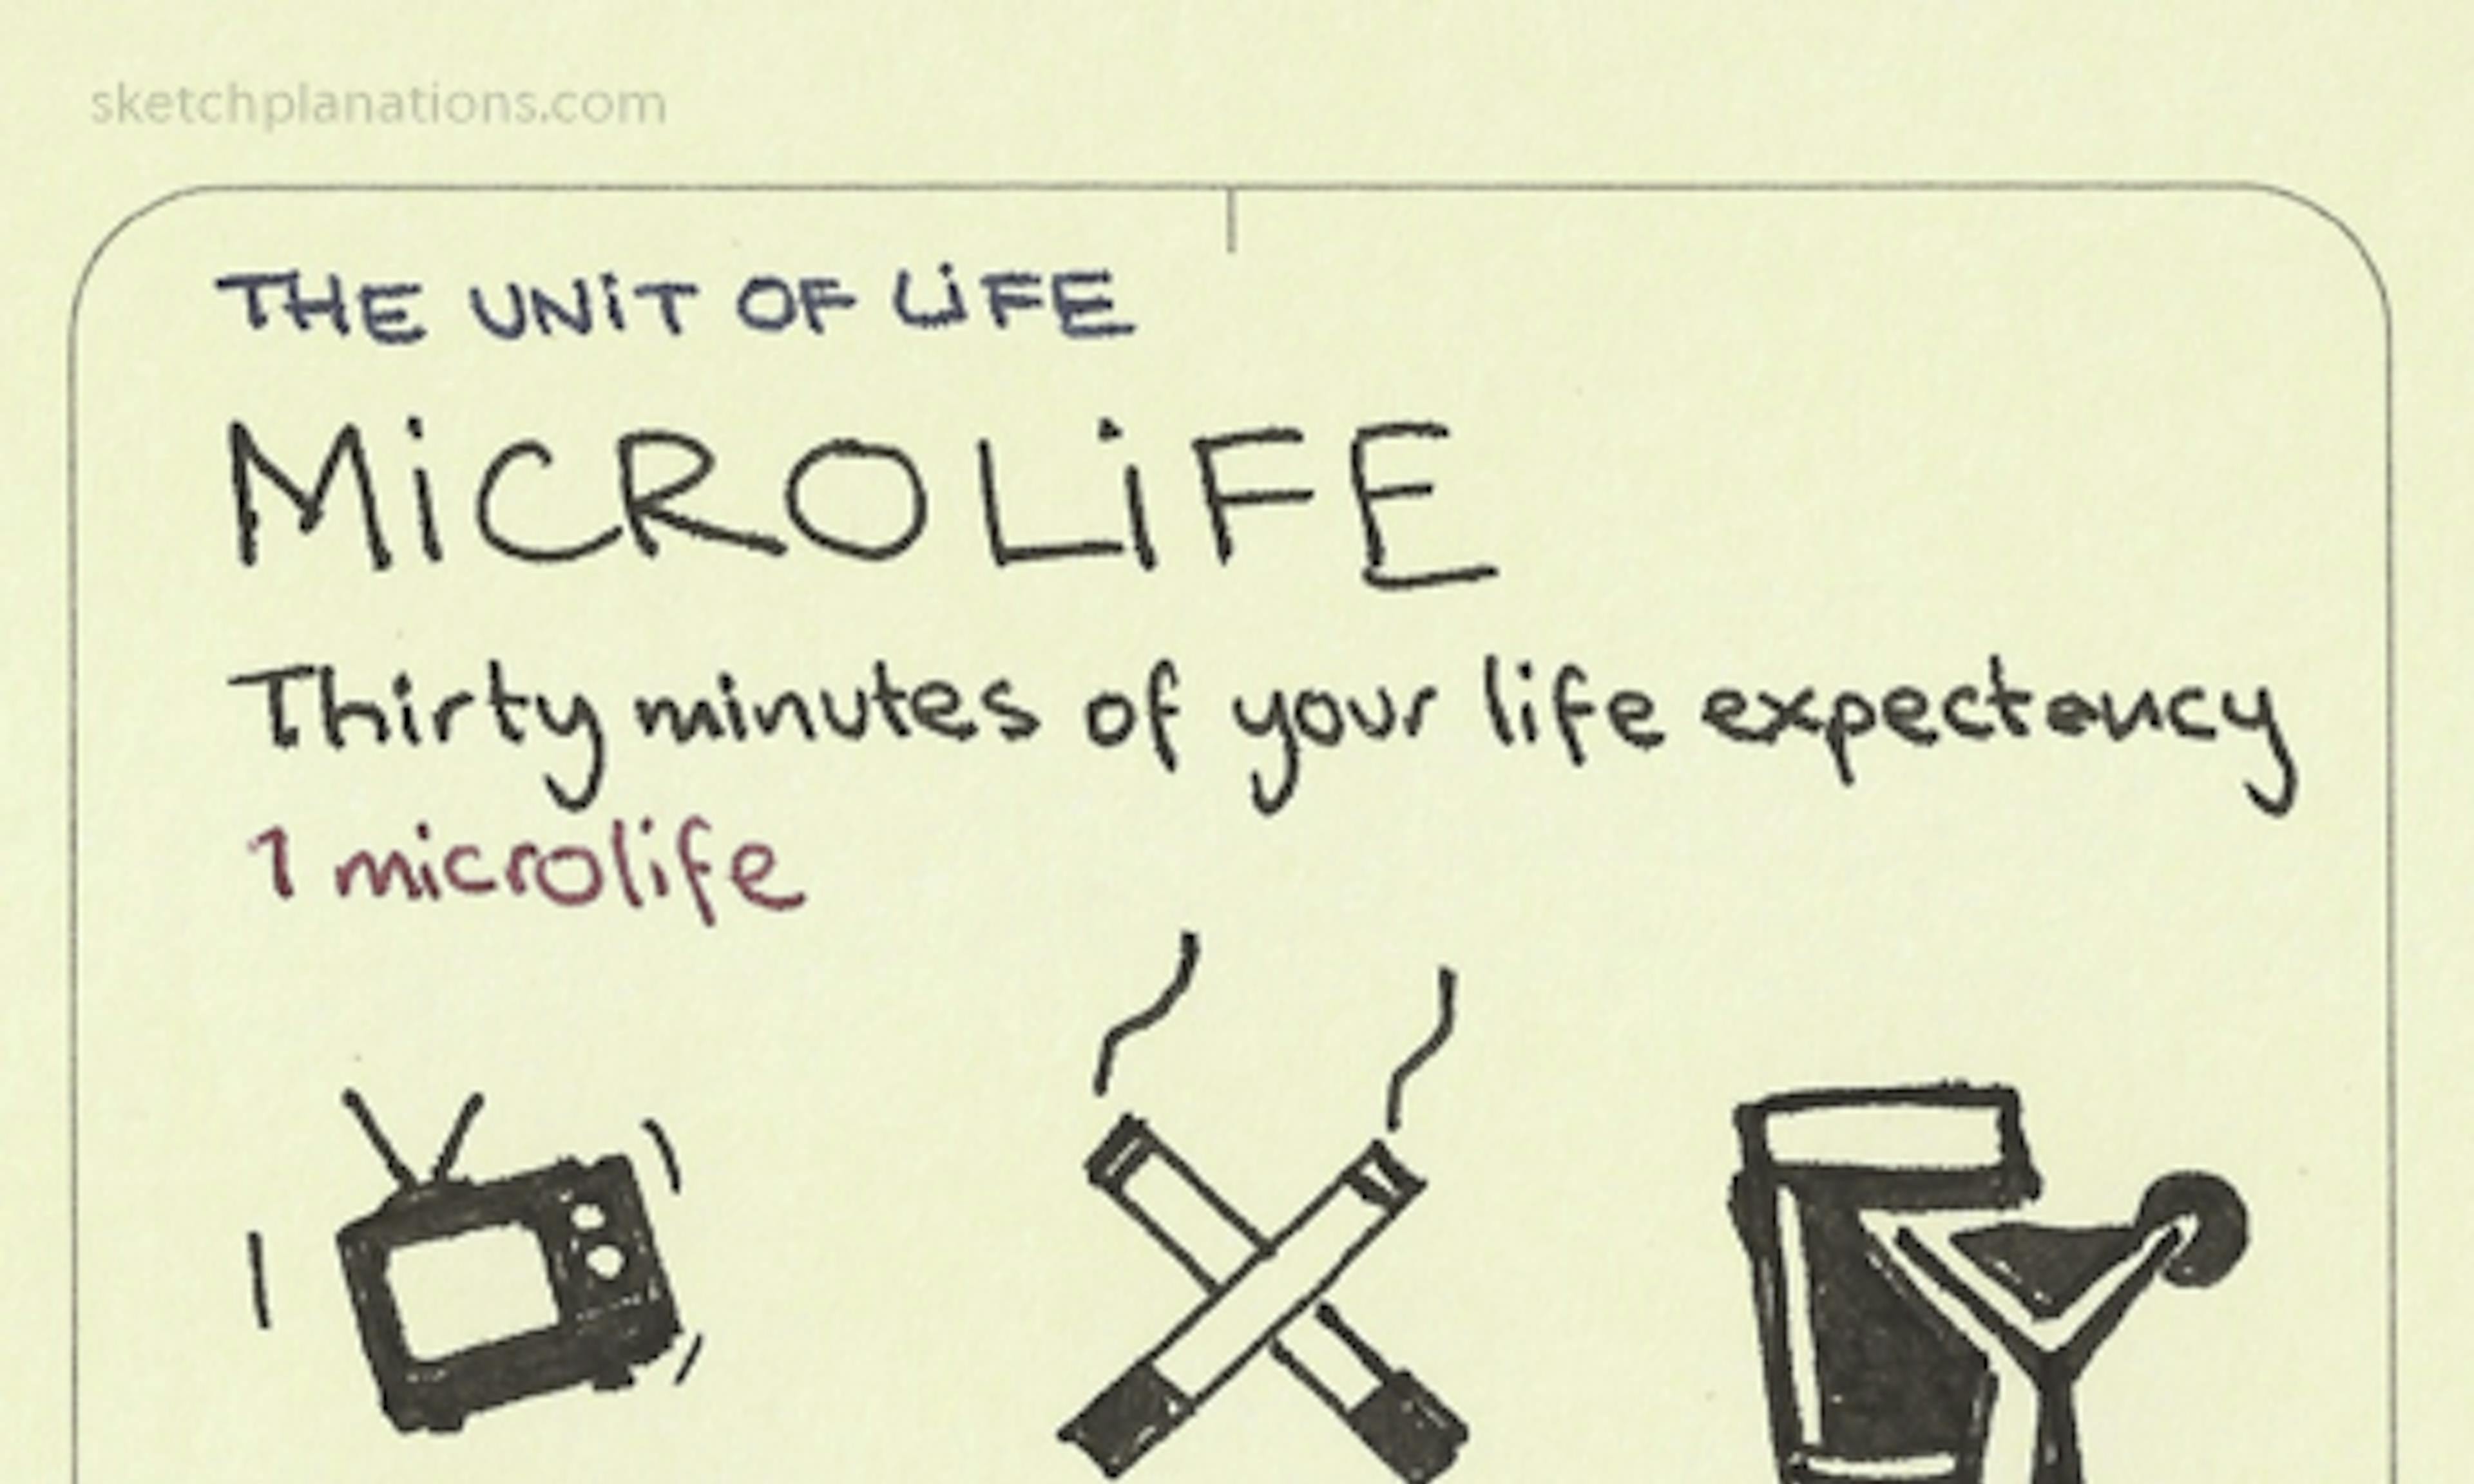 sketchplanations.com
THE UNiT OF LiFE
MiCROLiFE
Thirty minutes of your life expectancy
1 microlife